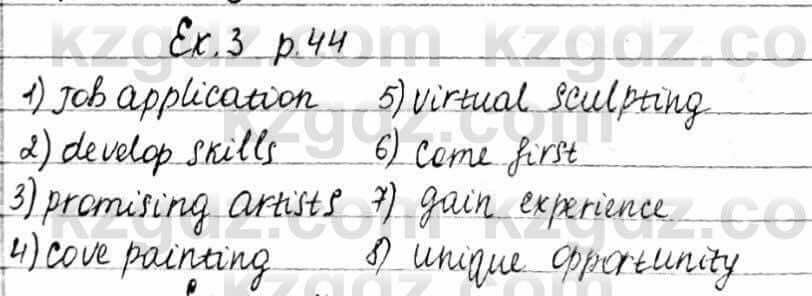 Ex. 3 p. 44
1) Job application 5) virtual sculpting
2) develop skills 6) come first
3) promising artists 7) gain experience
4) cove painting 8) unique opportunity
kzgdz.com